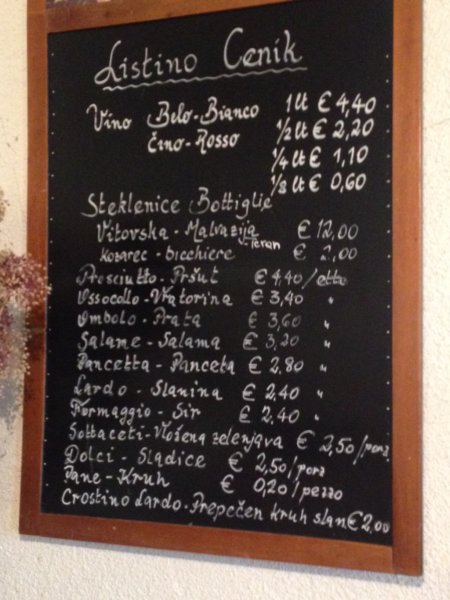 Listino Cenik
Vino Belo-Bianco 1 lt € 4,40
Čino-Rosso ½ lt € 2,20
¼ lt € 1,10
⅛ lt € 0,60
Steklenice Bottiglie
Vitovska - Malvazija € 12,00
Teran
Kozarec - bicchiere € 2,00
Prosciutto - Pršut € 4,40 / etto
Ossocollo - Vratorina € 3,40 "
Ombolo - Prata € 3,60 "
Salame - Salama € 3,20 "
Pancetta - Panceta € 2,80 "
Lardo - Slanina € 2,40 "
Formaggio - Sir € 2,40 "
Sottaceti - Vložena zelenjava € 2,50 / porz
Dolci - Sladice € 2,50 / porz
Pane - Kruh € 0,20 / pezzo
Crostino Lardo - Prepečen kruh slan € 2,00